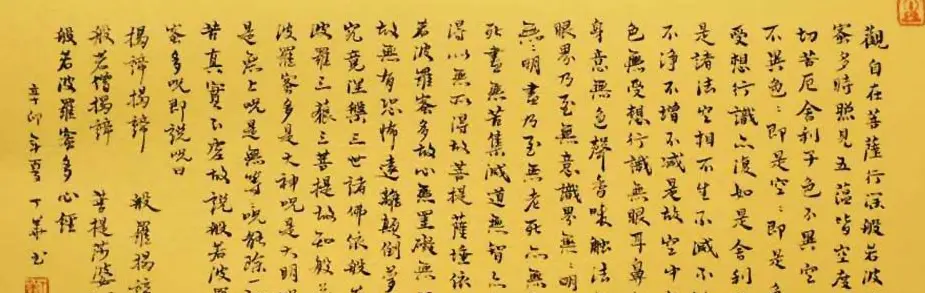 觀自在菩薩行深般若波
蜜多時照見五蘊皆空度
切苦厄舍利子色不異空
不異色:即是空:即是
受想行識亦復如是舍利
是諸法空相不生不滅不
不淨不增不減是故空中
色無受想行識無眼耳鼻
身意無色聲香味觸法
眼界乃至無意識界無:明
無:明盡乃至無老死亦無
死盡無苦集滅道無智亦
得以無所得故菩提薩埵依
若波羅蜜多故心無罣礙無
故無有恐怖遠離顛倒夢
究竟涅槃三世諸佛依般
波羅三藐三菩提故知般
波羅蜜多是大神呪是大明
是無上呪是無等:呪能除一
苦真實不虛故說般若波
蜜多呪即說呪曰
揭諦揭諦 般羅揭諦
般若僧揭諦 菩提莎婆
般若波羅蜜多心經
辛卯年夏 丁華书